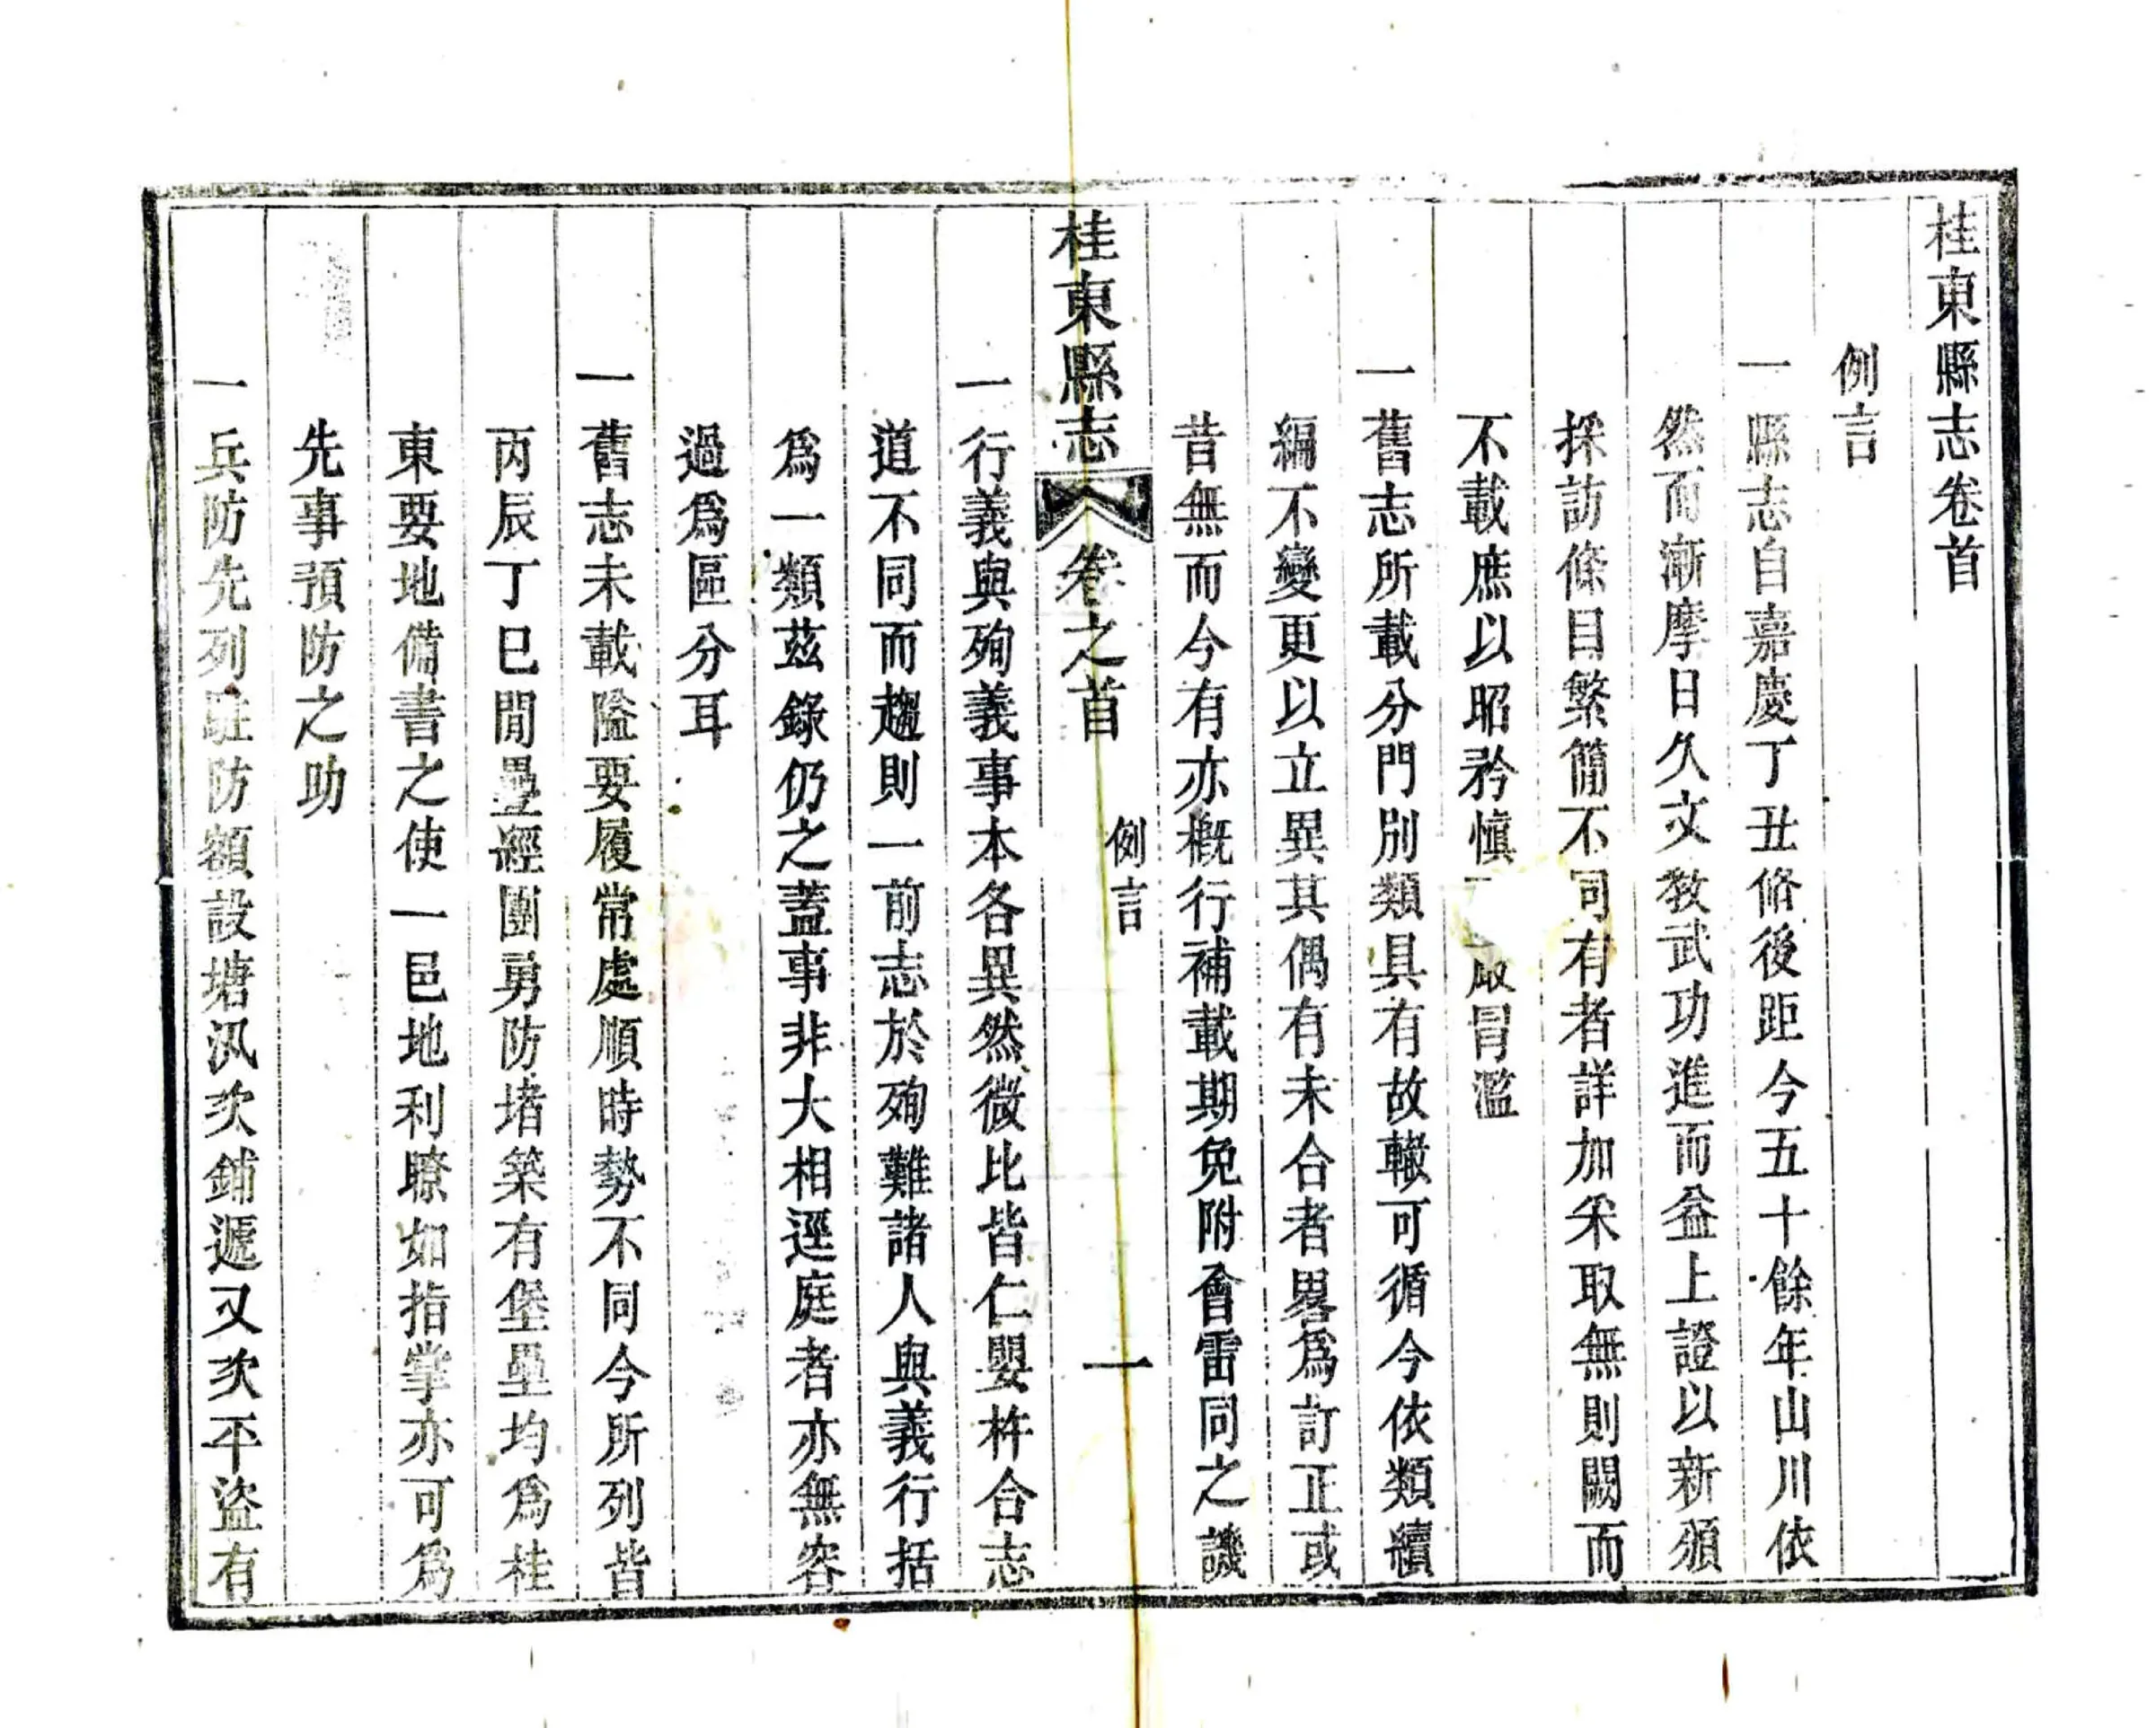 桂東縣志卷首
例言
一縣志自嘉慶丁丑脩後距今五十餘年山川依
然而漸摩日久文敎武功進而益上證以新頒
採訪條目繁簡不同有者詳加采取無則闕而
不載庶以昭矜愼冒濫
一舊志所載分門別類具有故轍可循今依類續
編不變更以立異其偶有未合者畧爲訂正或
昔無而今有亦槪行補載期免附會雷同之譏
桂東縣志
卷之首
例言
一
一行義與殉義事本各異然微比皆仁嬰杵合志
道不同而趨則一前志於殉難諸人與義行括
爲一類茲錄仍之蓋事非大相逕庭者亦無容
過爲區分耳
一舊志未載隘要履常處順時勢不同今所列皆
丙辰丁巳閒疊經團勇防堵築有堡壘均爲桂
東要地備書之使一邑地利瞭如指掌亦可爲
先事預防之助
一兵防先列駐防額設塘汛次鋪遞又次平盜有